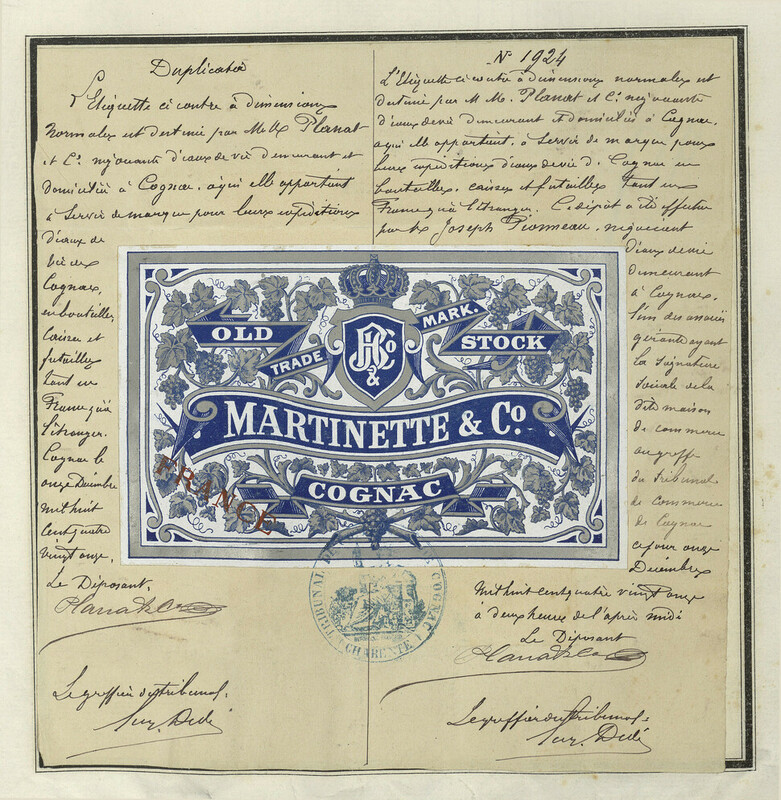 Duplicata
L'Etiquette ci contre à dimensions
normales est destinée par M M. Planat
et Cie. négociants d'eaux de vie demeurant et
domiciliés à Cognac, à qui elle appartient
à servir de marque pour leurs expéditions
d'eaux de
vie de
Cognac,
en bouteilles,
caisses et
futailles
tant en
France qu'à
l'étranger.
Cognac le
onze Décembre
mil huit
cent quatre
vingt onze.
Le Déposant,
Planat & Co
Le greffier du tribunal.
N° 1924
L'Etiquette ci contre à dimensions normales est
destinée par M M. Planat et Cie. négociants
d'eaux de vie demeurant et domiciliés à Cognac,
à qui elle appartient, à servir de marque pour
leurs expéditions d'eaux de vie de Cognac en
bouteilles, caisses et futailles tant en
France qu'à l'étranger. Ce dépôt a été effectué
par M. Joseph négociant
d'eaux de vie
demeurant
à Cognac,
l'un des associés
gérants ayant
la signature
sociale de la
dite maison
de commerce
au greffe
du tribunal
de commerce
de Cognac
ce jour onze
Décembre
mil huit cent quatre vingt onze
à deux heures de l'après midi
Le Déposant
Planat & Co
Le greffier du tribunal.
OLD STOCK
TRADE MARK.
MARTINETTE & Co.
COGNAC
FRANCE
TRIBUNAL DE COGNAC
CHARENTE